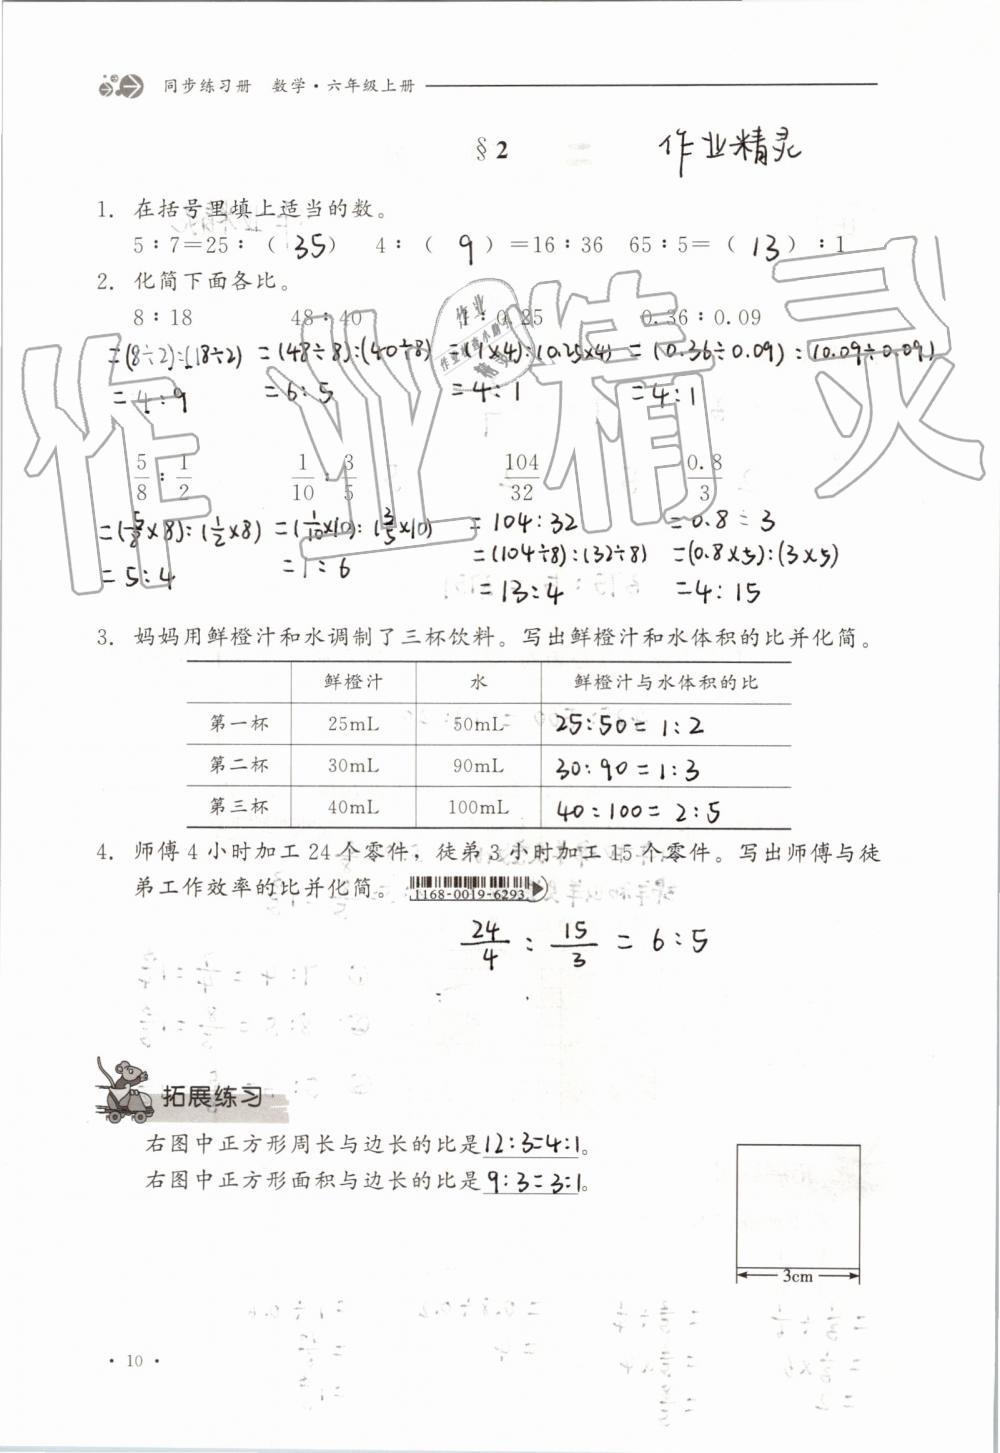 同步练习册 数学·六年级上册
§2 作业精灵
1. 在括号里填上适当的数。
5∶7=25∶(35) 4∶(9)=16∶36 65∶5=(13)∶1
2. 化简下面各比。
8∶18 48∶40 1∶0.25 0.36∶0.09
=(8÷2):(18÷2) =(48÷8):(40÷8) =(1×4):(0.25×4) =(0.36÷0.09):(0.09÷0.09)
=4:9 =6:5 =4:1 =4:1
5/8∶1/2 1/10∶3/5 104/32 0.8/3
=(5/8×8):(1/2×8) =(1/10×10):(3/5×10) =104:32 =0.8:3
=5:4 =1:6 =(104÷8):(32÷8) =(0.8×5):(3×5)
=13:4 =4:15
3. 妈妈用鲜橙汁和水调制了三杯饮料。写出鲜橙汁和水体积的比并化简。
鲜橙汁 水 鲜橙汁与水体积的比
第一杯 25mL 50mL 25:50=1:2
第二杯 30mL 90mL 30:90=1:3
第三杯 40mL 100mL 40:100=2:5
4. 师傅4小时加工24个零件，徒弟3小时加工15个零件。写出师傅与徒
弟工作效率的比并化简。 1168-0019-6293
24/4 : 15/3 = 6:5
拓展练习
右图中正方形周长与边长的比是12:3=4:1。
右图中正方形面积与边长的比是9:3=3:1。
3cm
·10·
作业精灵